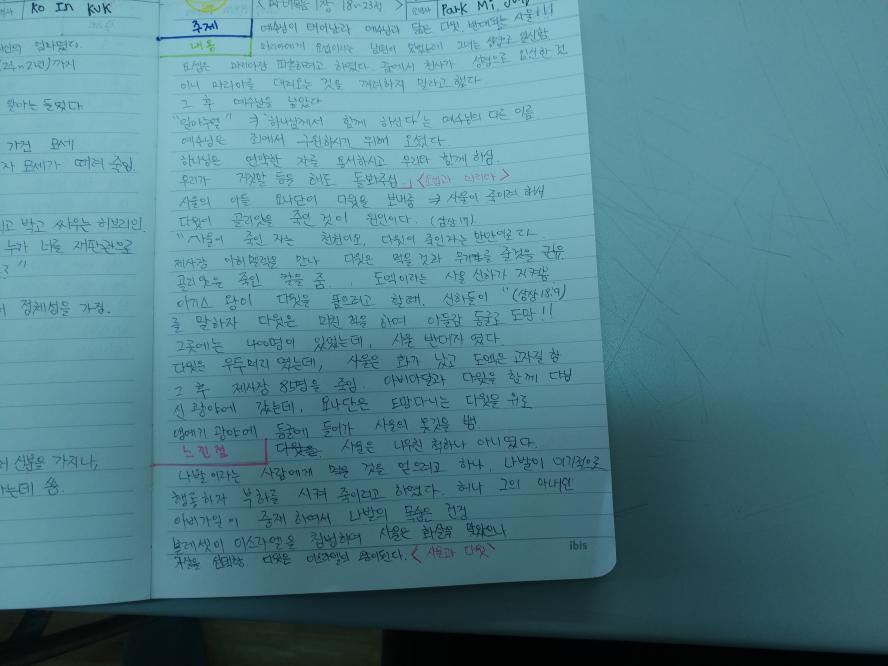 Ko In KUK
(24~2년)까지
말하는 들었다
가건 모세
자 모세가 때려 죽임
고 박고 싸우는 히브리인.
누가 너를 재판관으로
"
정체성을 가짐.
신분을 가지나,
는데 씀.
18~23절 > Park Mi
주제 예수님이 태어난과 예수님과 닮은 다윗, 반대되는 사울!!!
내용 마리아에게 요셉이라는 남편이 그녀는 성령으로 임신함
요셉은 마리아와 파혼하려고 하였다. 꿈에서 천사가 성령으로 임신한 것
이니 마리아를 데려오는 것을 꺼려하지 말라고 했다
그 후 예수님을 낳았다
"임마누엘" ⇒ '하나님께서 함께 하신다'는 예수님의 다른 이름
예수님은 죄에서 구원하시기 위해 오셨다
하나님은 연약한 자를 용서하시고 우리와 함께 하심
우리가 거짓말 등을 해도 돌봐주심 <요셉과 마리아>
사울의 아들 요나단이 다윗을 보내줌 ⇒ 사울이 죽이려 해서
다윗이 골리앗을 죽인 것이 원인이다. (삼상17)
"사울이 죽인 자는 천천이오, 다윗이 죽인자는 만만이로다
제사장 아히멜렉을 만나 다윗은 먹을것과 무기를 줄것을 권유
골리앗을 죽인 칼을 줌. 도엑이라는 사울 신하가 지켜봄
아기스 왕이 다윗을 품으려고 할때, 신하들이 "(삼상18:9)
를 말하자 다윗은 미친 척을 하여 아둘람 동굴로 도망!!
그곳에는 400명이 있었는데, 사울 반대자 였다.
다윗은 우두머리 였는데, 사울은 화가 났고 도엑은 고자질 함
그 후 제사장 85명을 죽임. 아비아달과 다윗을 함께 다님
신 광야에 갔는데, 요나단은 도망다니는 다윗을 위로
엔게디 광야에 동굴에 들어가 사울의 옷깃을 벰
느낀점 다윗을 사울은 뉘우친 척하나 아니였다.
나발이라는 사람에게 먹을 것을 얻으려고 하나, 나발이 이기적으로
행동하자 부하를 시켜 죽이려고 하였다. 허나 그의 아내인
아비가일이 중재 하여서 나발의 목숨은 건짐
블레셋이 이스라엘을 침범하여 사울은 화살을 맞았으나
자살을 선택함. 다윗은 이스라엘의 왕이된다. <사울과 다윗>
ibis